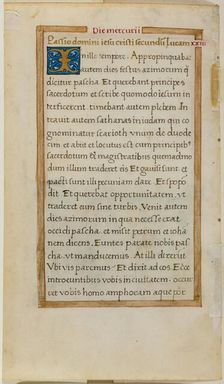 Die mercurii
Passio domini iesu cristi secundū Lucam xxiii
In ille tempore. Appropinquabat
autem dies festus azimorum q
dicitur pascha. Et querebant principes
sacerdotum et scribe quomodo iesum in
terficerent timebant autem plebem. In
trauit autem sathanas in iudam qui co
gnominatur scarioth unum de duode
cim et abiit et locutus est cum principibꝰ
sacerdotum & magistratibus quemadmo
dum illum traderet eis. Et gauisi sunt. et
pacti sunt illi pecuniam dare. Et spopo
dit. Et querebat oportunitatem. ut
traderet eum sine turbis. Venit autem
dies azimorum in qua necesse erat
occidi pascha. et misit petrum et ioha
nem dicens. Euntes parate nobis pas
cha. ut manducemus. At illi dixerūt
Vbi uis paremus. Et dixit ad eos. Ecce
introeuntibus uobis in ciuitatem. occur
ret vobis homo amphoram aque por